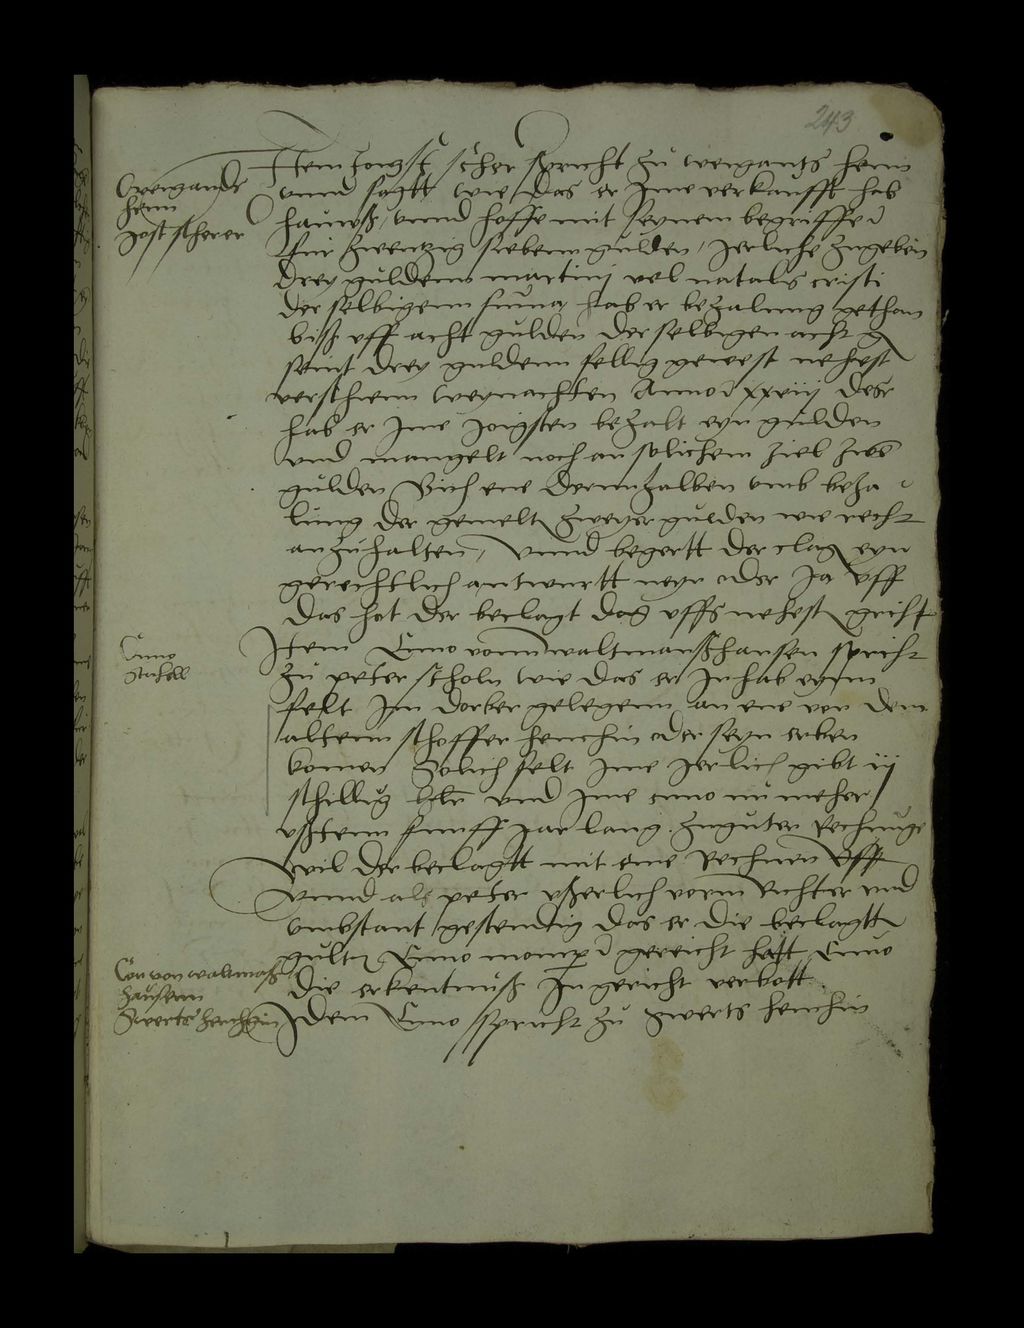 243
Weigands
henn
Jost scherer
Item Jorgst scher spricht zu weigants henn
vnnd sagtt wie das er Ime verkaufft hab
hauwß, vnnd hoffe mit seynem begriffe
fur zwentzig siebenn gulden, jerliche zugeben
drey guldenn martinj vel natalis cristi
der selbigenn suma hab er bezalung gethan
biß vff acht gulden der selbigen acht g
seint drey guldenn fellig gewest nehest
verschienn weynachten Anno xxviij deß
hab er Ime jorgsten bezalt eyn gulden
vnd mangelt noch an solichem ziel zwen
gulden Sich ene derenhalben vmb beza
lung der gemelt zweyer gulden wie recht
anzuhalten, vnnd begertt der clag eyn
gerechtlich antwurtt neyn oder Ja vff
das hat der beclagt dag vffs nehest gericht
Cuno
scholl
Item Cuno vonn waltmanßhausen spricht
zu peter scholn wie das er Inhab eynn
felt Im dorber gelegenn an ene von dem
altenn schoffer henchin oder seyn erben
komen Solich felt Ime jerlich gibt iij
schilling hlr vnd Ime cuno nu meher
vßtenn funff jar lang. zuguter Rechnuge
wil der beclagtt mit ene Rechnen Vff
vnnd als peter vßerlich vorm Richter vnd
vmbstant gestendig das er die beclagtt
gult Cuno gereicht hatt Cuno
die erkentnuß In gericht verbott
Con von waltmaß
hausenn
Zwerts henchgin
Idem Cuno spricht zu zwerts henchin